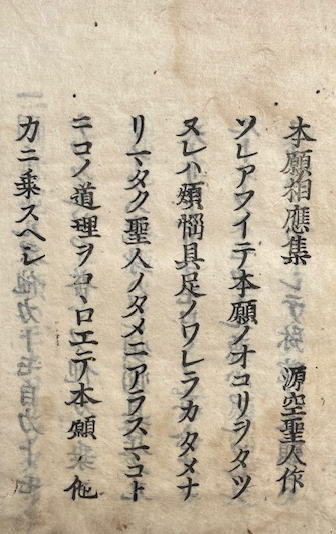 本願相應集　源空聖人作
ソレアフイテ本願ノオコリヲタツ
ヌレハ煩惱具足ノワレラカタメナ
リマタク聖人ノタメニアラスマコト
ニコノ道理ヲコヽロエテ本願ノ他
力ニ乗スヘシ